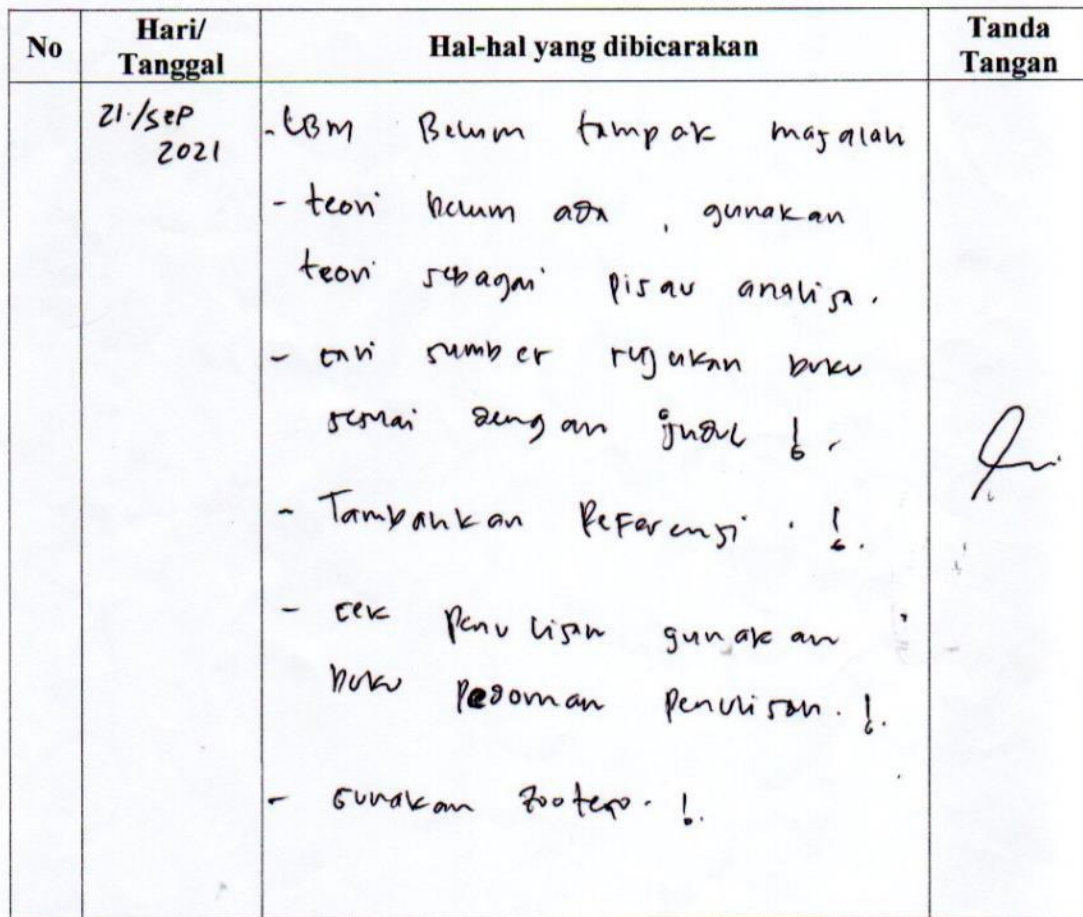 No
Hari/
Tanggal
Hal-hal yang dibicarakan
Tanda
Tangan
21/SEP
2021
- LBM Belum tampak masalah
- teori belum ada, gunakan
teori sebagai pisau analisa.
- cari sumber rujukan buku
sesuai dengan judul !.
- Tambahkan Referensi . !.
- cek penulisan gunakan
buku pedoman penulisan. !.
- Gunakan zotero. !.